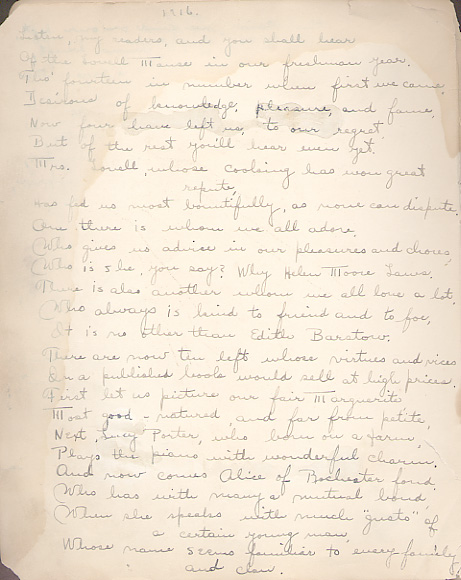 1916.
Listen, my readers, and you shall hear
Of the Lovell House in our freshman year.
Tho' fourteen in number when first we came,
Desirous of knowledge, pleasure, and fame,
Now four have left us, to our regret,
But of the rest you'll hear even yet.
Mrs. Lovell, whose cooking has won great
repute,
Has fed us most bountifully, as none can dispute.
One there is whom we all adore,
Who gives us advice in our pleasures and chores,
Who is she, you say? Why Helen Moore Laws.
There is also another whom we all love a lot,
Who always is kind to friend and to foe,
It is no other than Edith Barstow.
There are now ten left whose virtues and vices
In a published book would sell at high prices.
First let us picture our fair Marguerite
Most good-natured, and far from petite,
Next, Lucy Porter, who born on a farm,
Plays the piano with wonderful charm.
And now comes Alice of Rochester fond
Who has with many a mutual bond,
When she speaks with much "gusto" of
a certain young man,
Whose name seems familiar to every family
and clan.